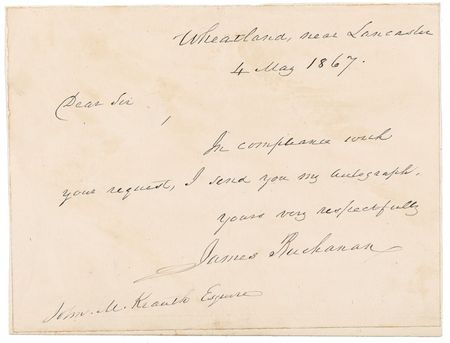 Wheatland, near Lancaster
4 May 1867.
Dear Sir
In compliance with
your request, I send you my autograph.
Yours very respectfully
James Buchanan
M. Krauth Esquire